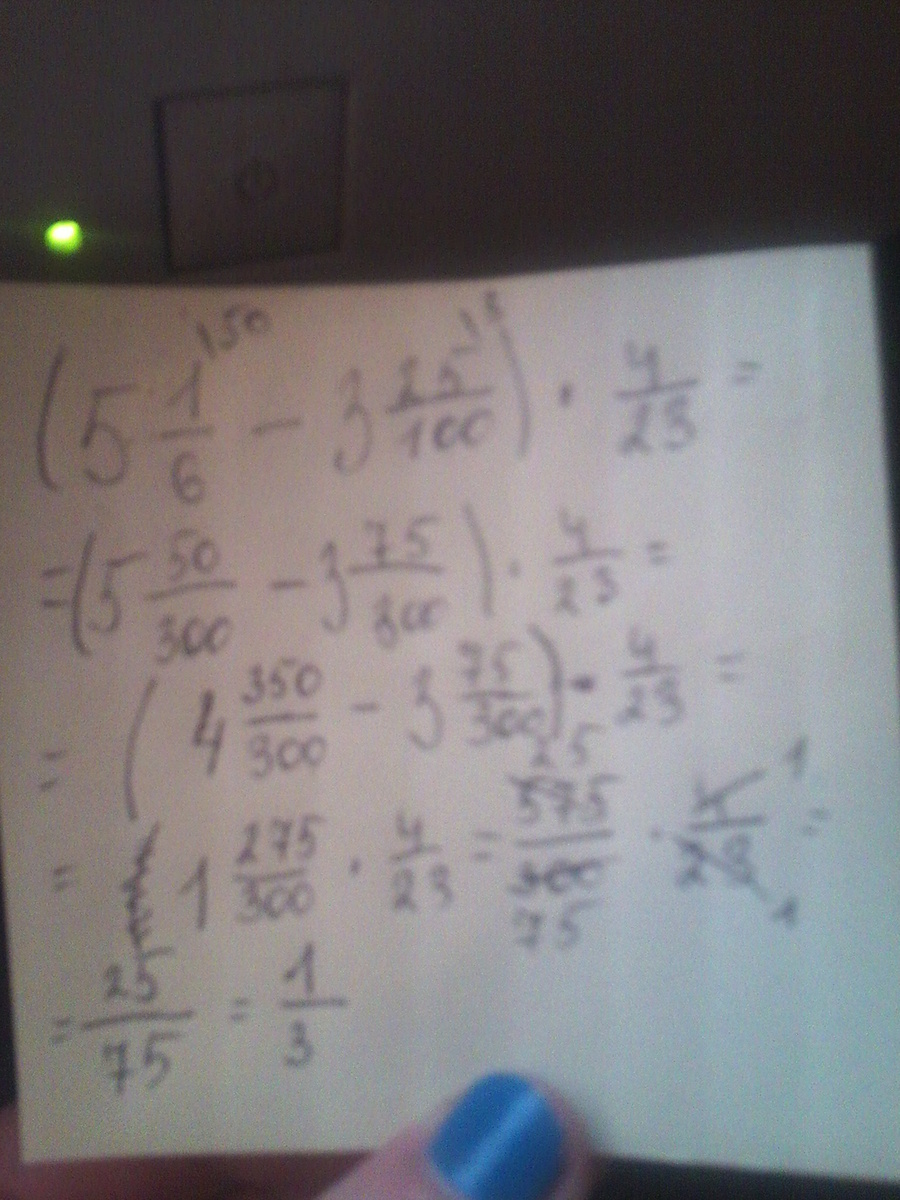 (5 1/6 - 3 25/100) · 4/23 =
= (5 50/300 - 3 75/300) · 4/23 =
= (4 350/300 - 3 75/300) · 4/23 =
= 1 275/300 · 4/23 = 575/300 · 4/23 =
25 75 1 1
= 25/75 = 1/3